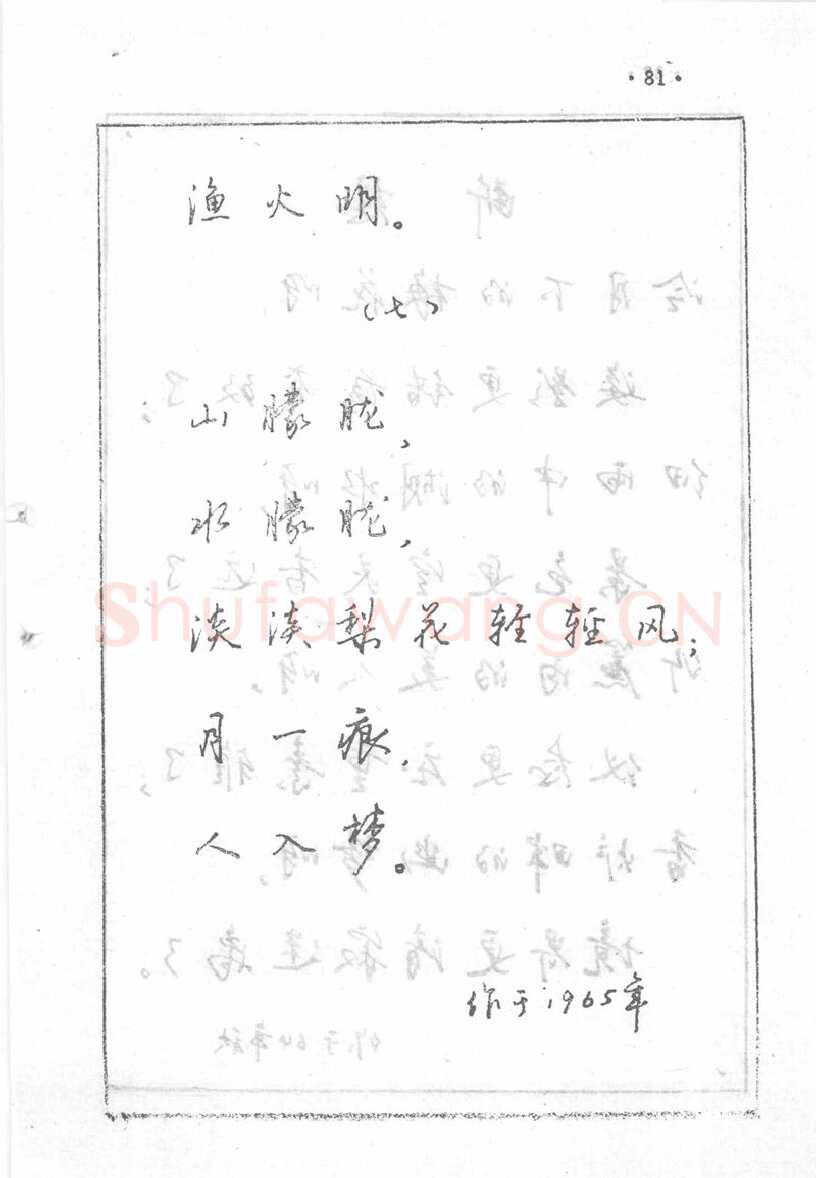 ·81·
渔火明。
（七）
山朦胧，
水朦胧，
淡淡梨花轻轻风；
月一痕，
人入梦。
作于1965年
Shufawang.CN